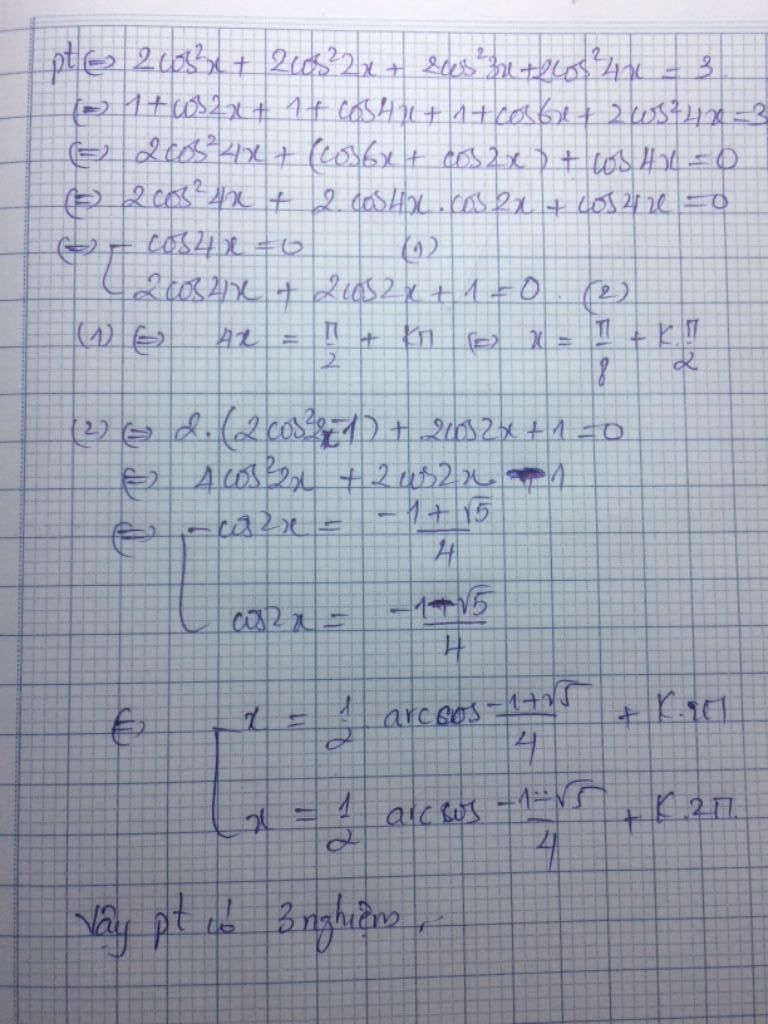 pt ⇔ 2cos²x + 2cos²2x + 2cos²3x + 2cos²4x = 3
⇔ 1 + cos2x + 1 + cos4x + 1 + cos6x + 2cos²4x = 3
⇔ 2cos²4x + (cos6x + cos2x) + cos4x = 0
⇔ 2cos²4x + 2.cos4x.cos2x + cos4x = 0
⇔ [ cos4x = 0 (1)
2cos4x + 2cos2x + 1 = 0. (2)
(1) ⇔ 4x = π/2 + kπ ⇔ x = π/8 + k.π/2
(2) ⇔ 2.(2cos²2x-1) + 2cos2x + 1 = 0
⇔ 4cos²2x + 2cos2x - 1
⇔ [ cos2x = (-1+√5)/4
cos2x = (-1-√5)/4
⇔ [ x = 1/2 arccos (-1+√5)/4 + k.2π
x = 1/2 arccos (-1-√5)/4 + k.2π.
Vậy pt có 3 nghiệm.